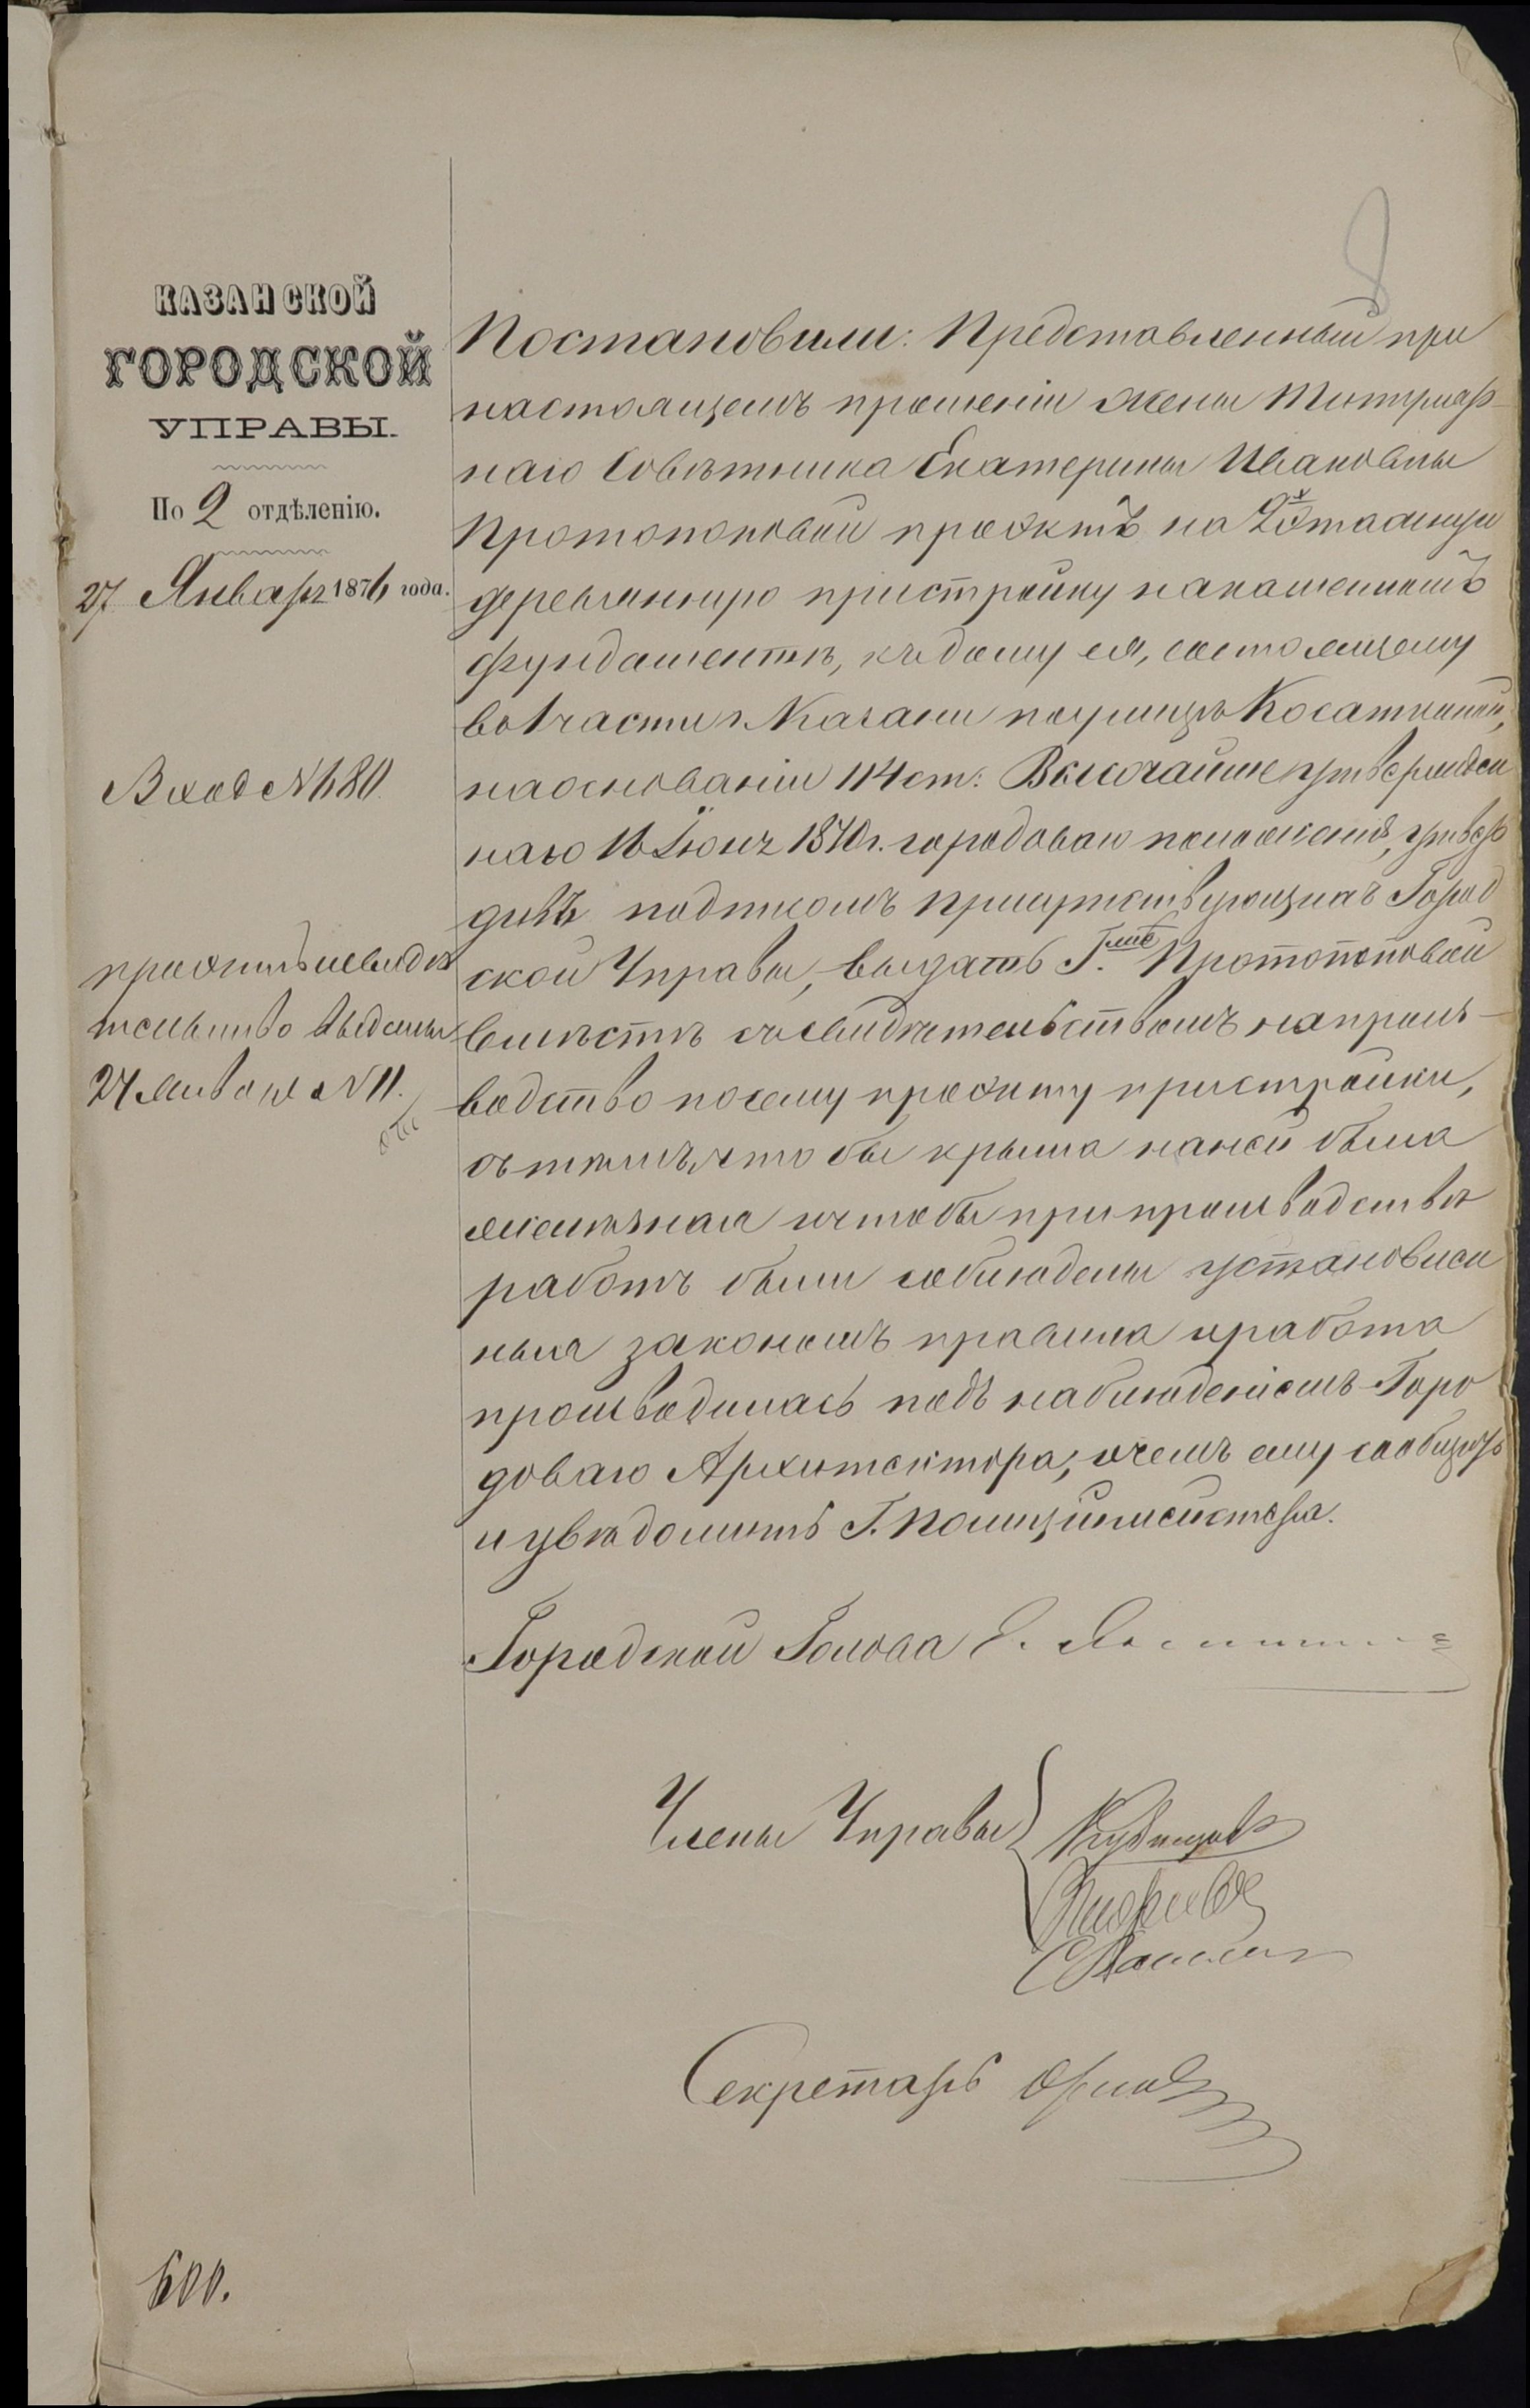 КАЗАНСКОЙ
ГОРОДСКОЙ
УПРАВЫ.
По 2 отдѣленію.
27 Января 1876 года.
Вход № 680
проэктъ и свидѣ
тельство выданы
27 Января № 11.
8
Постановили: Представленный при
настоящемъ прошеніи жены Титуляр-
наго Совѣтника Екатерины Ивановны
Протопоповой проэктъ на 2х этажную
деревянную пристройку на каменномъ
фундаментѣ, къ дому ея, состоящему
во 1 части г. Казани по улицѣ Косаткиной,
на основаніи 114 ст: Высочайше утвержден
наго 16 Іюня 1870 г. городоваго положенія, утвер
дивъ подписомъ присутствующихъ Город
ской Управы, выдать Г.жѣ Протопоповой
вмѣстѣ съ свидѣтельствомъ на произ-
водство по сему проэкту пристройки,
съ тѣмъ, что бы крыша на ней была
желѣзная и чтобы при производствѣ
работъ были соблюдены установлен
ныя закономъ правила и работа
производилась подъ наблюденіемъ Горо
доваго Архитектора, о чемъ ему сообщить
и увѣдомить Г. Полиціймейстера.
Городской Голова
Члены Управы
Секретарь
600.